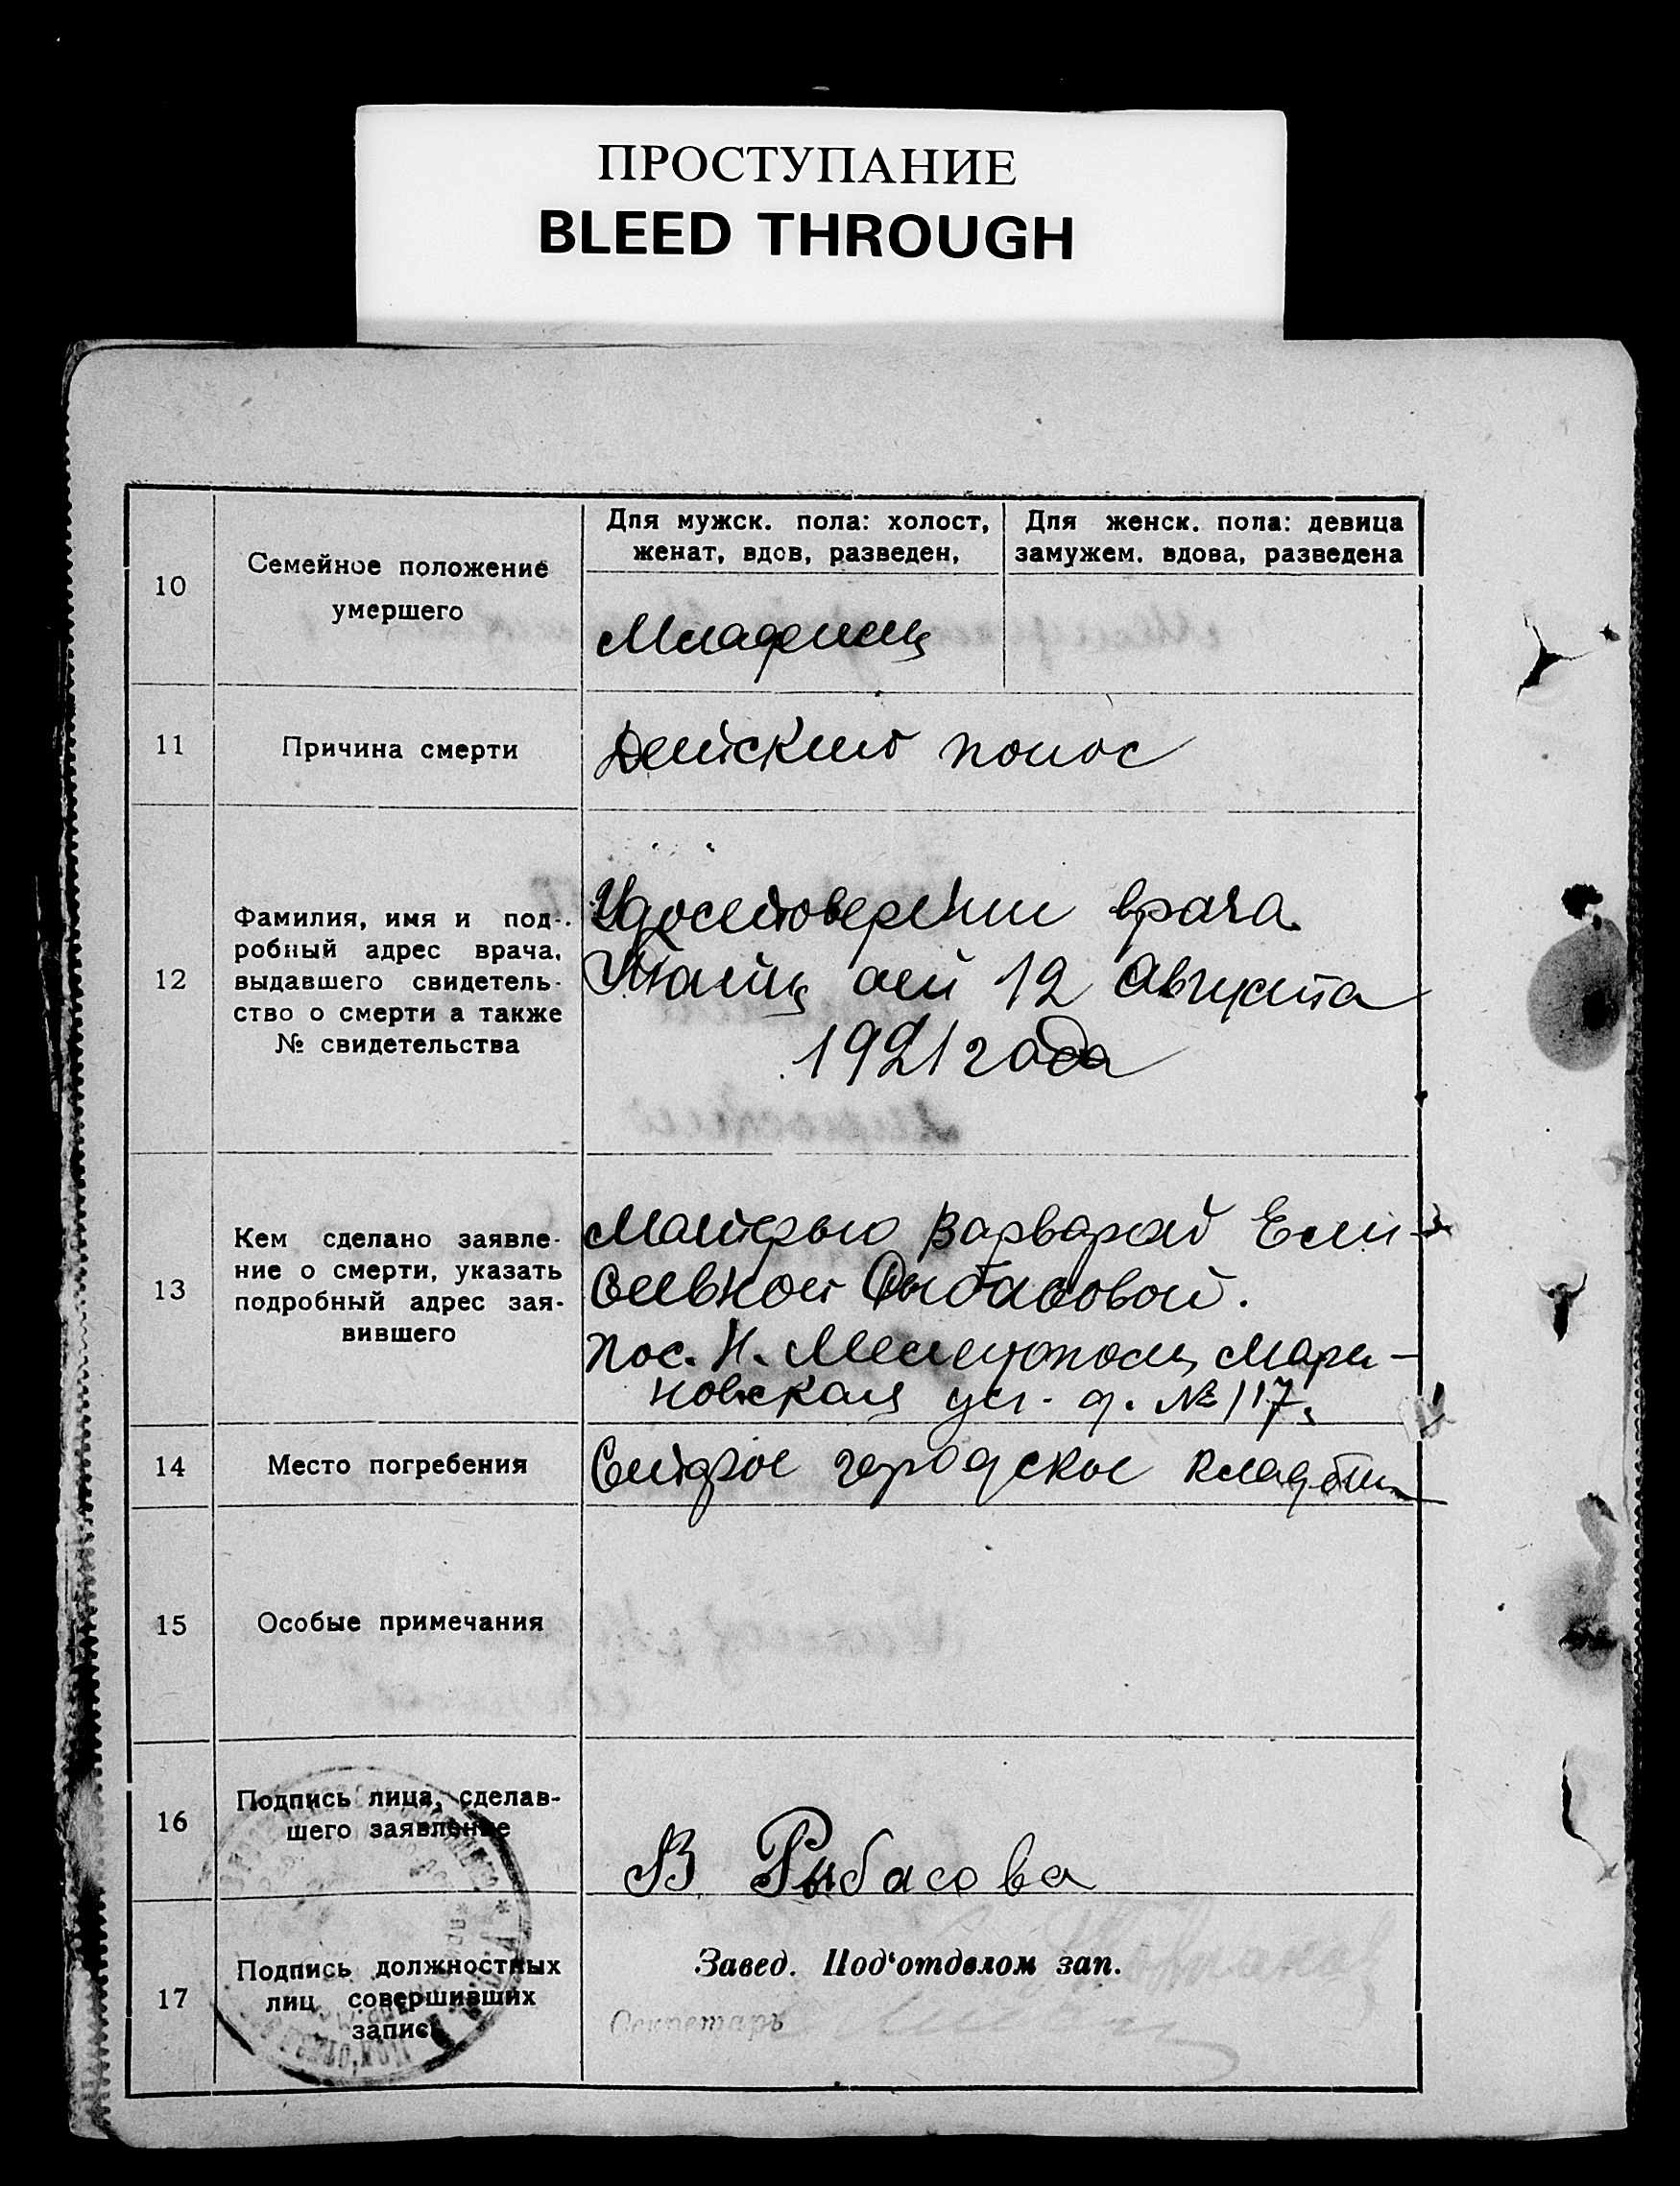 ПРОСТУПАНИЕ
BLEED THROUGH
10
Семейное положение
умершего
Для мужск. пола: холост,
женат, вдов, разведен,
Для женск. пола: девица
замужем, вдова, разведена
Младенец
11
Причина смерти
Детский понос
12
Фамилия, имя и под-
робный адрес врача,
выдавшего свидетель-
ство о смерти а также
№ свидетельства
Удостоверении врача
12 Августа
1921 года
13
Кем сделано заявле-
ние о смерти, указать
подробный адрес зая-
вившего
Матерью Варварой
Рыбасовой.
пос. Н. Мелитополь Мари-
новская ул. д. № 117,
14
Место погребения
Старое городское
15
Особые примечания
16
Подпись лица, сделав-
шего заявление
В Рыбасова
17
Подпись должностных
лиц совершивших
запись
Завед. Под‘отделом зап.
Секретарь